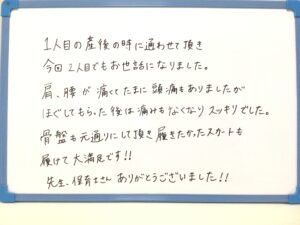 1人目の産後の時に通わせて頂き
今回2人目でもお世話になりました。
肩、腰が痛くてたまに頭痛もありましたが
ほぐしてもらった後は痛みもなくなりスッキリでした。
骨盤も元通りにして頂き履きたかったスカートも
履けて大満足です!!
先生、保育士さんありがとうございました!!